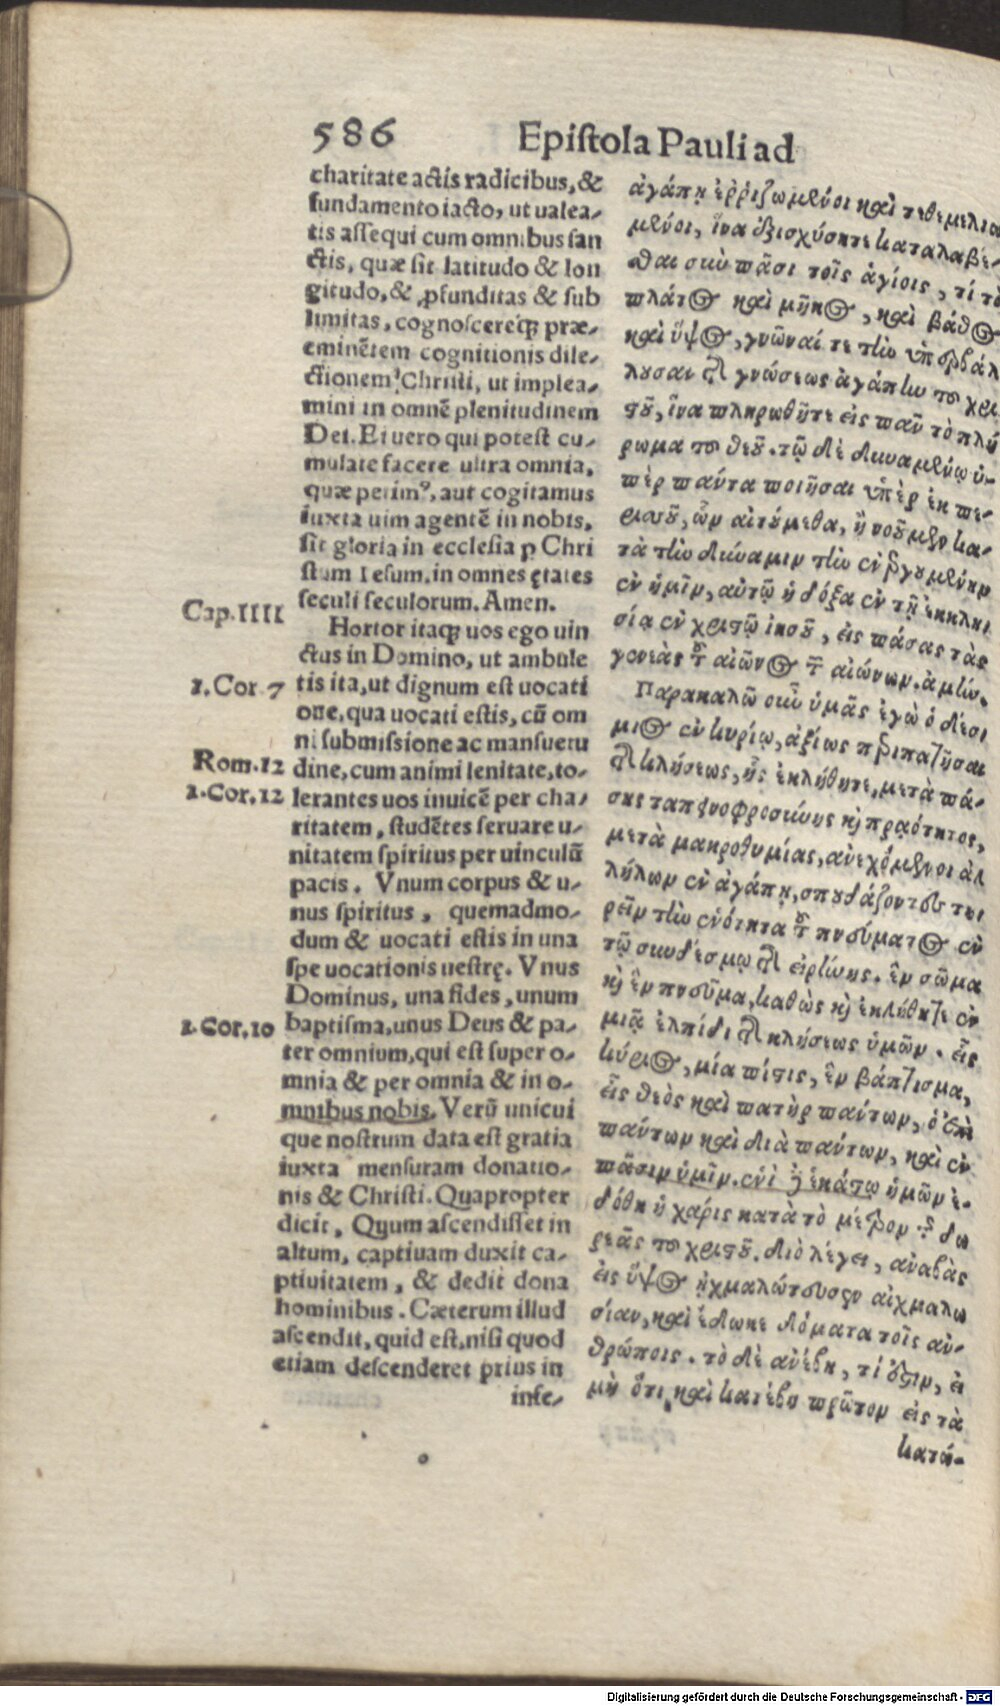 586 Epistola Pauli ad
charitate actis radicibus, &
fundamento iacto, ut ualea-
tis assequi cum omnibus san
ctis, quæ sit latitudo & lon
gitudo, & ꝓfunditas & sub
limitas, cognoscereq́ꝫ præ-
eminẽtem cognitionis dile-
ctionem Christi, ut implea-
mini in omnẽ plenitudinem
Dei. Ei uero qui potest cu-
mulate facere ultra omnia,
quæ petimꝰ, aut cogitamus
iuxta uim agentẽ in nobis,
sit gloria in ecclesia ꝑ Chri
stum Iesum, in omnes ętates
seculi seculorum. Amen.
Cap. IIII
Hortor itaqꝫ uos ego uin
ctus in Domino, ut ambule
1. Cor 7
tis ita, ut dignum est uocati
one, qua uocati estis, cũ om
ni submissione ac mansuetu
Rom. 12
dine, cum animi lenitate, to-
1. Cor. 12
lerantes uos inuicẽ per cha-
ritatem, studẽtes seruare u-
nitatem spiritus per uinculũ
pacis. Vnum corpus & u-
nus spiritus, quemadmo-
dum & uocati estis in una
spe uocationis uestrę. Vnus
Dominus, una fides, unum
1. Cor. 10
baptisma, unus Deus & pa-
ter omnium, qui est super o-
mnia & per omnia & in o-
mnibus nobis. Verũ unicui
que nostrum data est gratia
iuxta mensuram donatio-
nis & Christi. Quapropter
dicit, Quum ascendisset in
altum, captiuam duxit ca-
ptiuitatem, & dedit dona
hominibus. Cæterum illud
ascendit, quid est, nisi quod
etiam descenderet prius in
infe-
ἀγάπῃ ἐῤῥιζωμένοι καὶ τεθεμελιω
μένοι, ἵνα ἐξισχύσητε καταλαβέ-
σθαι σὺν πᾶσι τοῖς ἁγίοις, τί τὸ
πλάτος καὶ μῆκος, καὶ βάθος
καὶ ὕψος, γνῶναί τε τὴν ὑπερβάλ
λουσαν τῆς γνώσεως ἀγάπην τοῦ χρι
στοῦ, ἵνα πληρωθῆτε εἰς πᾶν τὸ πλή
ρωμα τοῦ θεοῦ. τῷ δὲ δυναμένῳ ὑ-
πὲρ πάντα ποιῆσαι ὑπὲρ ἐκ πε-
ρισσοῦ, ὧν αἰτούμεθα, ἢ νοοῦμεν κα-
τὰ τὴν δύναμιν τὴν ἐνεργουμένην
ἐν ἡμῖν, αὐτῷ ἡ δόξα ἐν τῇ ἐκκλη
σίᾳ ἐν χριστῷ ἰησοῦ, εἰς πάσας τὰς
γενεὰς τοῦ αἰῶνος τῶν αἰώνων. ἀμήν.
Παρακαλῶ οὖν ὑμᾶς ἐγὼ ὁ δέσ
μιος ἐν κυρίῳ, ἀξίως περιπατῆσαι
τῆς κλήσεως, ἧς ἐκλήθητε, μετὰ πά-
σης ταπεινοφροσύνης καὶ πραότητος,
μετὰ μακροθυμίας, ἀνεχόμενοι ἀλ
λήλων ἐν ἀγάπῃ, σπουδάζοντες τη
ρεῖν τὴν ἑνότητα τοῦ πνεύματος ἐν
τῷ συνδέσμῳ τῆς εἰρήνης. ἓν σῶμα
καὶ ἓν πνεῦμα, καθὼς καὶ ἐκλήθητε ἐν
μιᾷ ἐλπίδι τῆς κλήσεως ὑμῶν. εἷς
κύριος, μία πίστις, ἓν βάπτισμα,
εἷς θεὸς καὶ πατὴρ πάντων, ὁ ἐπὶ
πάντων καὶ διὰ πάντων, καὶ ἐν
πᾶσιν ὑμῖν. ἑνὶ δὲ ἑκάστῳ ἡμῶν ἐ-
δόθη ἡ χάρις κατὰ τὸ μέτρον τῆς δω
ρεᾶς τοῦ χριστοῦ. διὸ λέγει, ἀναβὰς
εἰς ὕψος ᾐχμαλώτευσεν αἰχμαλω
σίαν, καὶ ἔδωκε δόματα τοῖς ἀν-
θρώποις. τὸ δὲ ἀνέβη, τί ἐστιν, εἰ
μὴ ὅτι καὶ κατέβη πρῶτον εἰς τὰ
κατώ-
Digitalisierung gefördert durch die Deutsche Forschungsgemeinschaft - DFG